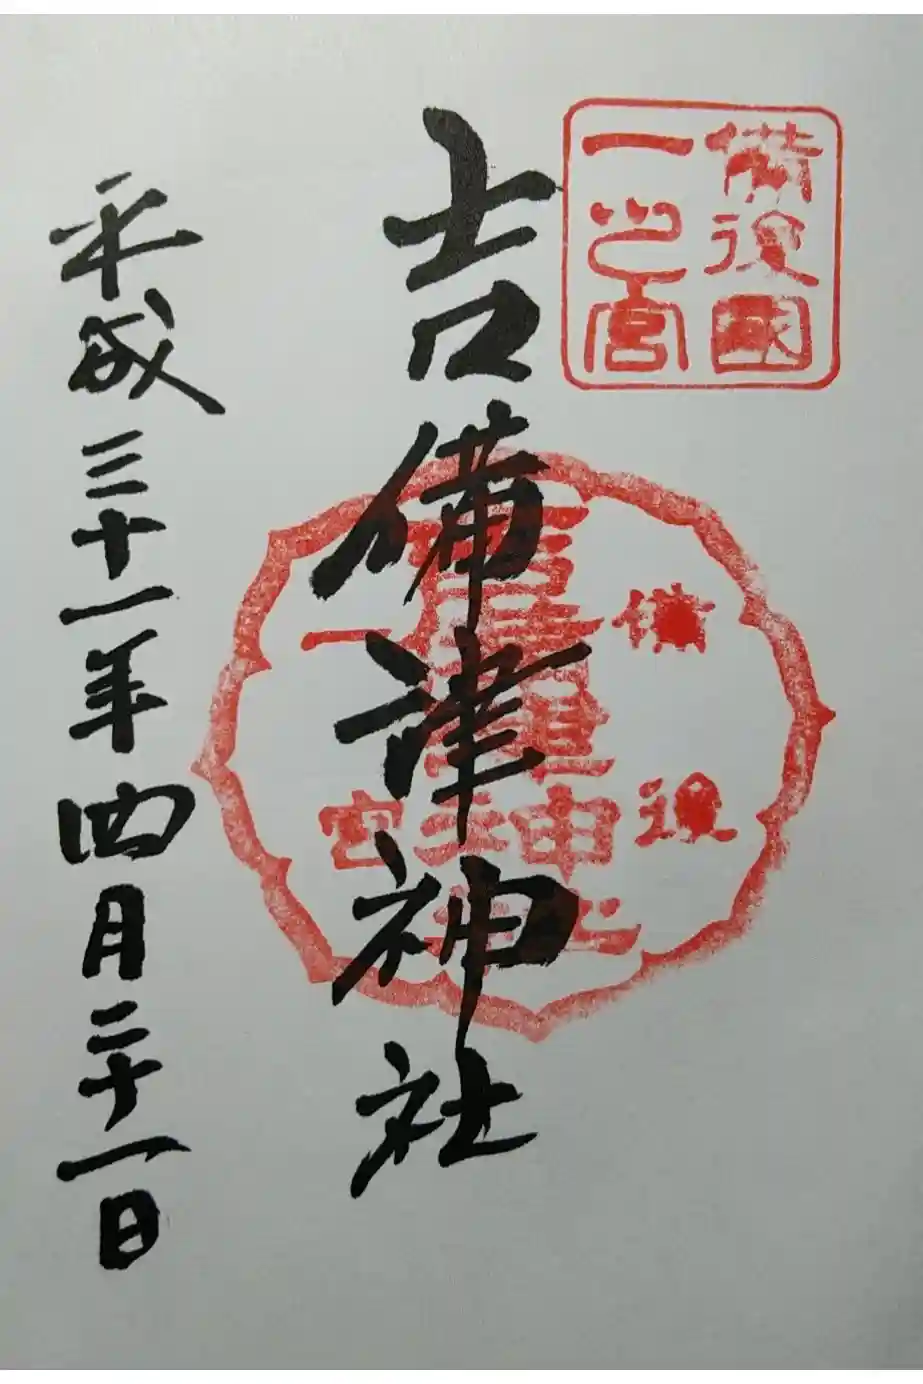 備後國
一之宮
吉備津神社
備後
一宮
平成三十一年四月二十一日